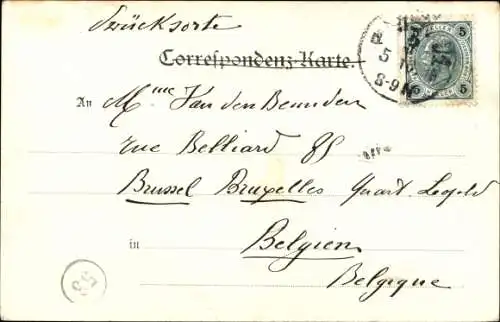 Drucksorte
Correspondenz-Karte.
5
8-9N
5 HELLER 5
An Mme Van den Beunden
rue Belliard 85
Brussel Bruxelles Quart. Leopold
in Belgien
Belgique
53